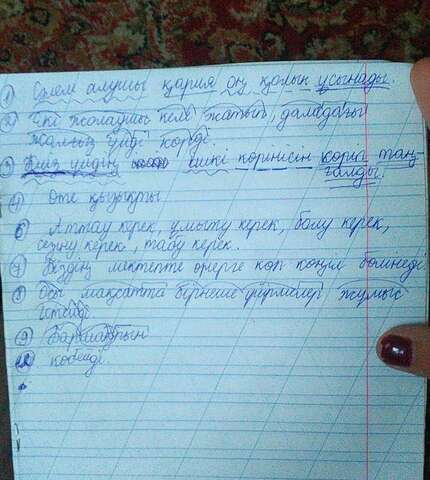 ① Сәлем алушы қария оң қолын ұсынады.
② Екі жолаушы келе жатып, даладағы
жалғыз үйді көрді.
③ Киіз үйдің ішкі көрінісін көріп таң-
ғалды.
④ Өте қызықты
⑥ Аттау керек, ұмыту керек, болу керек,
сезіну керек, табу керек.
⑦ Біздің мектепте өнерге көп көңіл бөлінеді.
⑧ Осы мақсатта бірнеше үйірмелер жұмыс
істейді
⑨
⑩ көбейді.